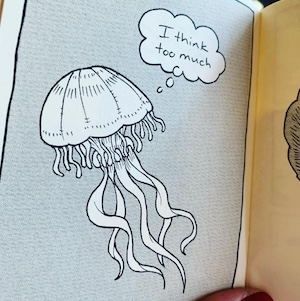 I think
too much